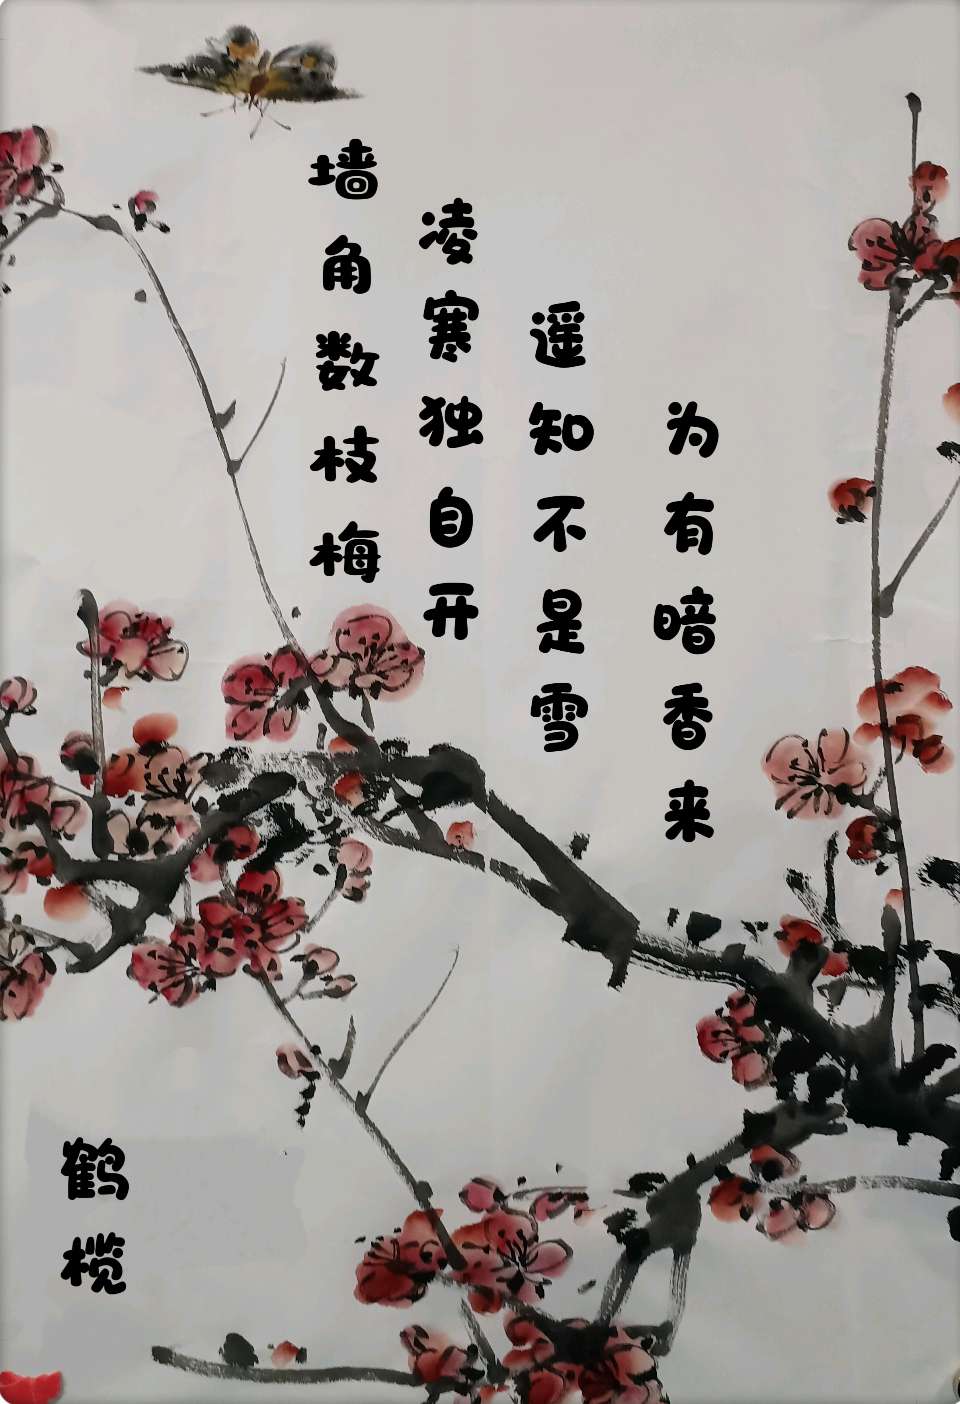 墙角数枝梅
凌寒独自开
遥知不是雪
为有暗香来
鹤榄